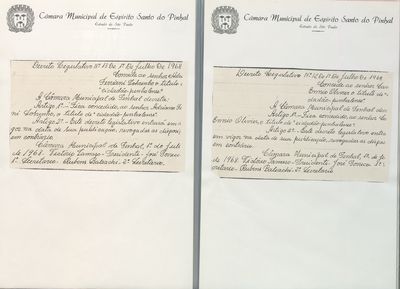 Câmara Municipal de Espírito Santo do Pinhal
Estado de São Paulo
Decreto Legislativo Nº 13 De 1º De Julho De 1968
Concede ao senhor
Ferriani Sobrinho o título
"cidadão pinhalense"
A Câmara Municipal de Pinhal decreta:
Artigo 1º - Fica concedido, ao senhor
Sobrinho, o título de "cidadão pinhalense".
Artigo 2º - Este decreto legislativo entrará em
na data de sua publicação, revogadas as dispo
contrário.
Câmara Municipal de Pinhal, 1º de Julh
de 1968. Presidente - José
1º Secretário - Rubens 2º Secretário.
Câmara Municipal de Espírito Santo do Pinhal
Estado de São Paulo
Decreto Legislativo Nº 12 De 1º De Julho De 1968
Concede ao senhor
Olivier, o título de "ci
dadão pinhalense"
A Câmara Municipal de Pinhal
Artigo 1º - Fica concedido, ao senhor
Olivier, o título de "cidadão pinhalense".
Artigo 2º - Este decreto legislativo entra
em vigor na data de sua publicação, revogadas as dispo
em contrário.
Câmara Municipal de Pinhal, 1º de
de 1968. Presidente - José 1º
Secretário - Rubens 2º Secretário